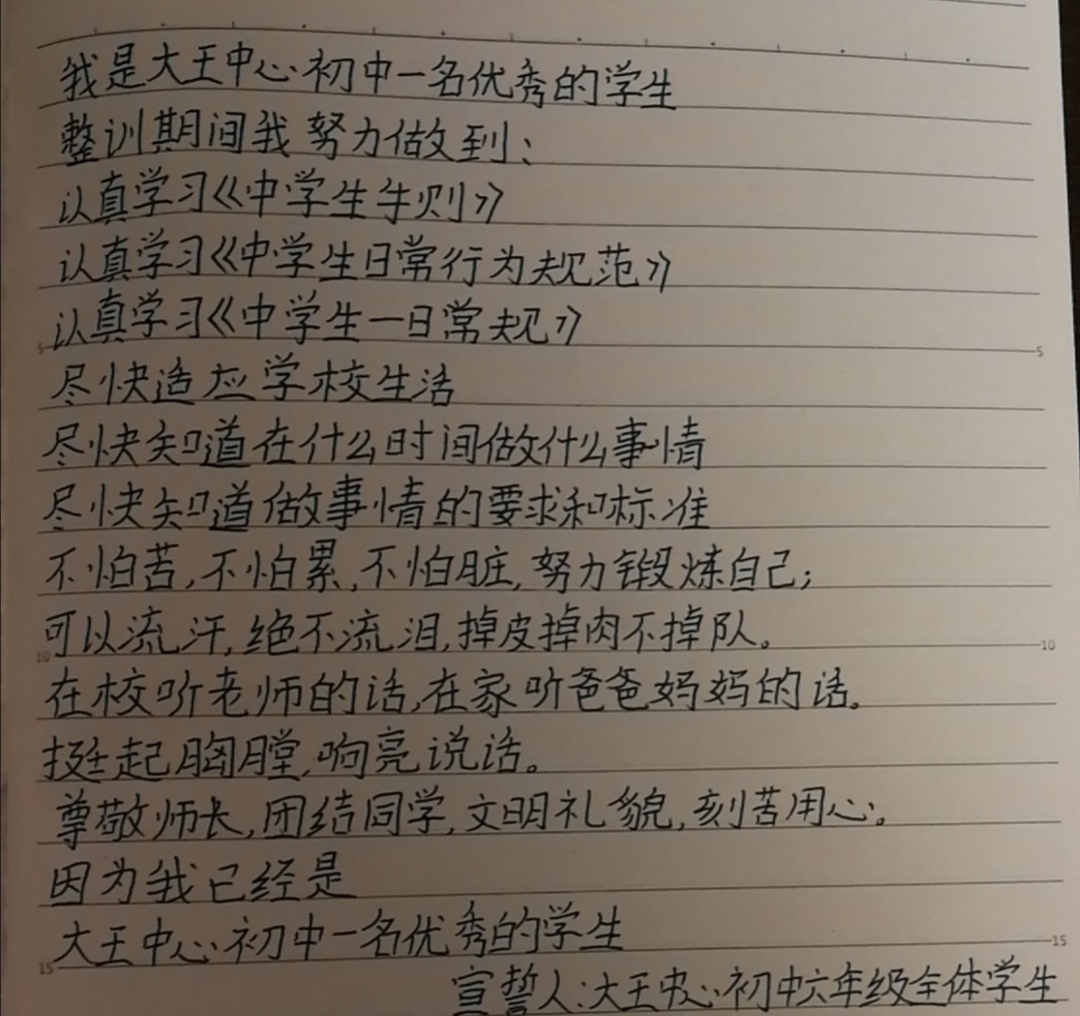 我是大王中心初中一名优秀的学生
整训期间我努力做到：
认真学习《中学生守则》
认真学习《中学生日常行为规范》
认真学习《中学生一日常规》
尽快适应学校生活
尽快知道在什么时间做什么事情
尽快知道做事情的要求和标准
不怕苦,不怕累,不怕脏,努力锻炼自己；
可以流汗,绝不流泪,掉皮掉肉不掉队。
在校听老师的话,在家听爸爸妈妈的话。
挺起胸膛,响亮说话。
尊敬师长,团结同学,文明礼貌,刻苦用心。
因为我已经是
大王中心初中一名优秀的学生
宣誓人：大王中心初中六年级全体学生
5
5
10
10
15
15